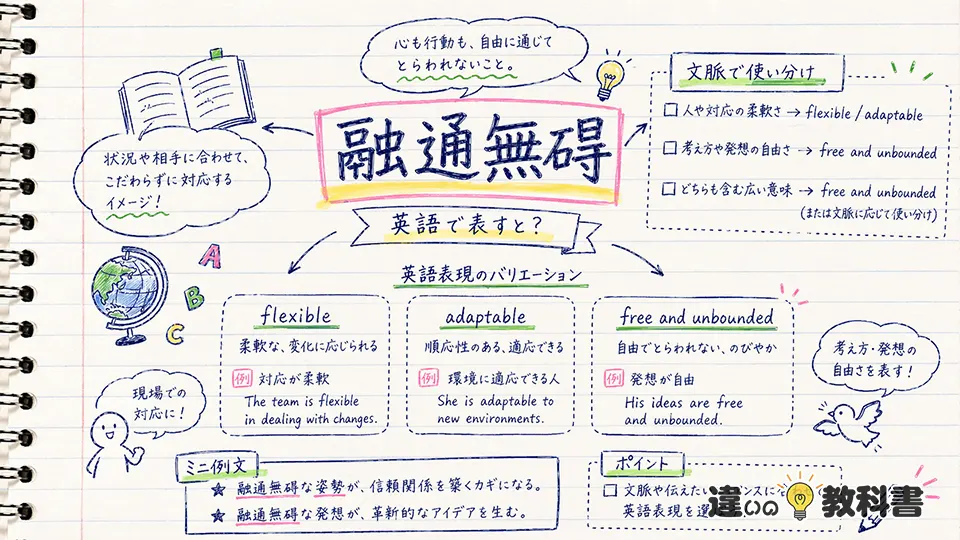 心も行動も、自由に通じて
とらわれないこと。
融通無碍
状況や相手に合わせて、
こだわらずに対応する
イメージ！
文脈で使い分け
人や対応の柔軟さ→flexible / adaptable
考え方や発想の自由さ→free and unbounded
どちらも含む広い意味→free and unbounded
(または文脈に応じて使い分け)
英語で表すと？
英語表現のバリエーション
A
B
C
flexible
柔軟な、変化に応じられる
例 対応が柔軟
The team is flexible
in dealing with changes.
adaptable
順応性のある、適応できる
例 環境に適応できる人
She is adaptable to
new environments.
free and unbounded
自由でとらわれない、のびやか
例 発想が自由
His ideas are free
and unbounded.
考え方・発想の
自由さを表す！
現場での
対応に！
ミニ例文
★ 融通無碍な姿勢が、信頼関係を築くカギになる。
★ 融通無碍な発想が、革新的なアイデアを生む。
ポイント
文脈や伝えたい
英語表現を選
違いの教科書